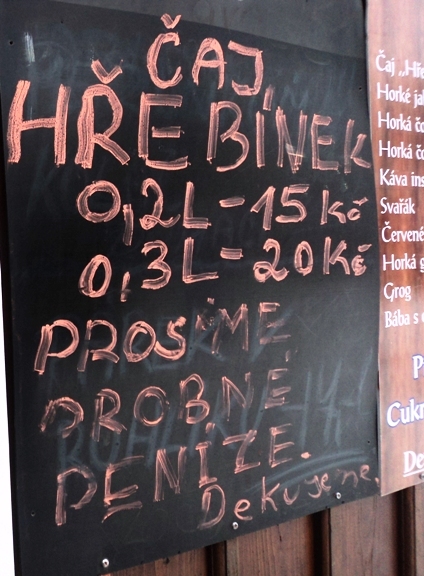 ČAJ
HŘEBÍNEK
0,2L - 15 Kč
0,3L - 20 Kč
PROSÍME
DROBNÉ
PENÍZE.
Dekujeme.
Čaj „Hře
Horké ja
Horká čo
Horká čo
Káva ins
Svařák
Červené
Horká g
Grog
Bába s
Cukr